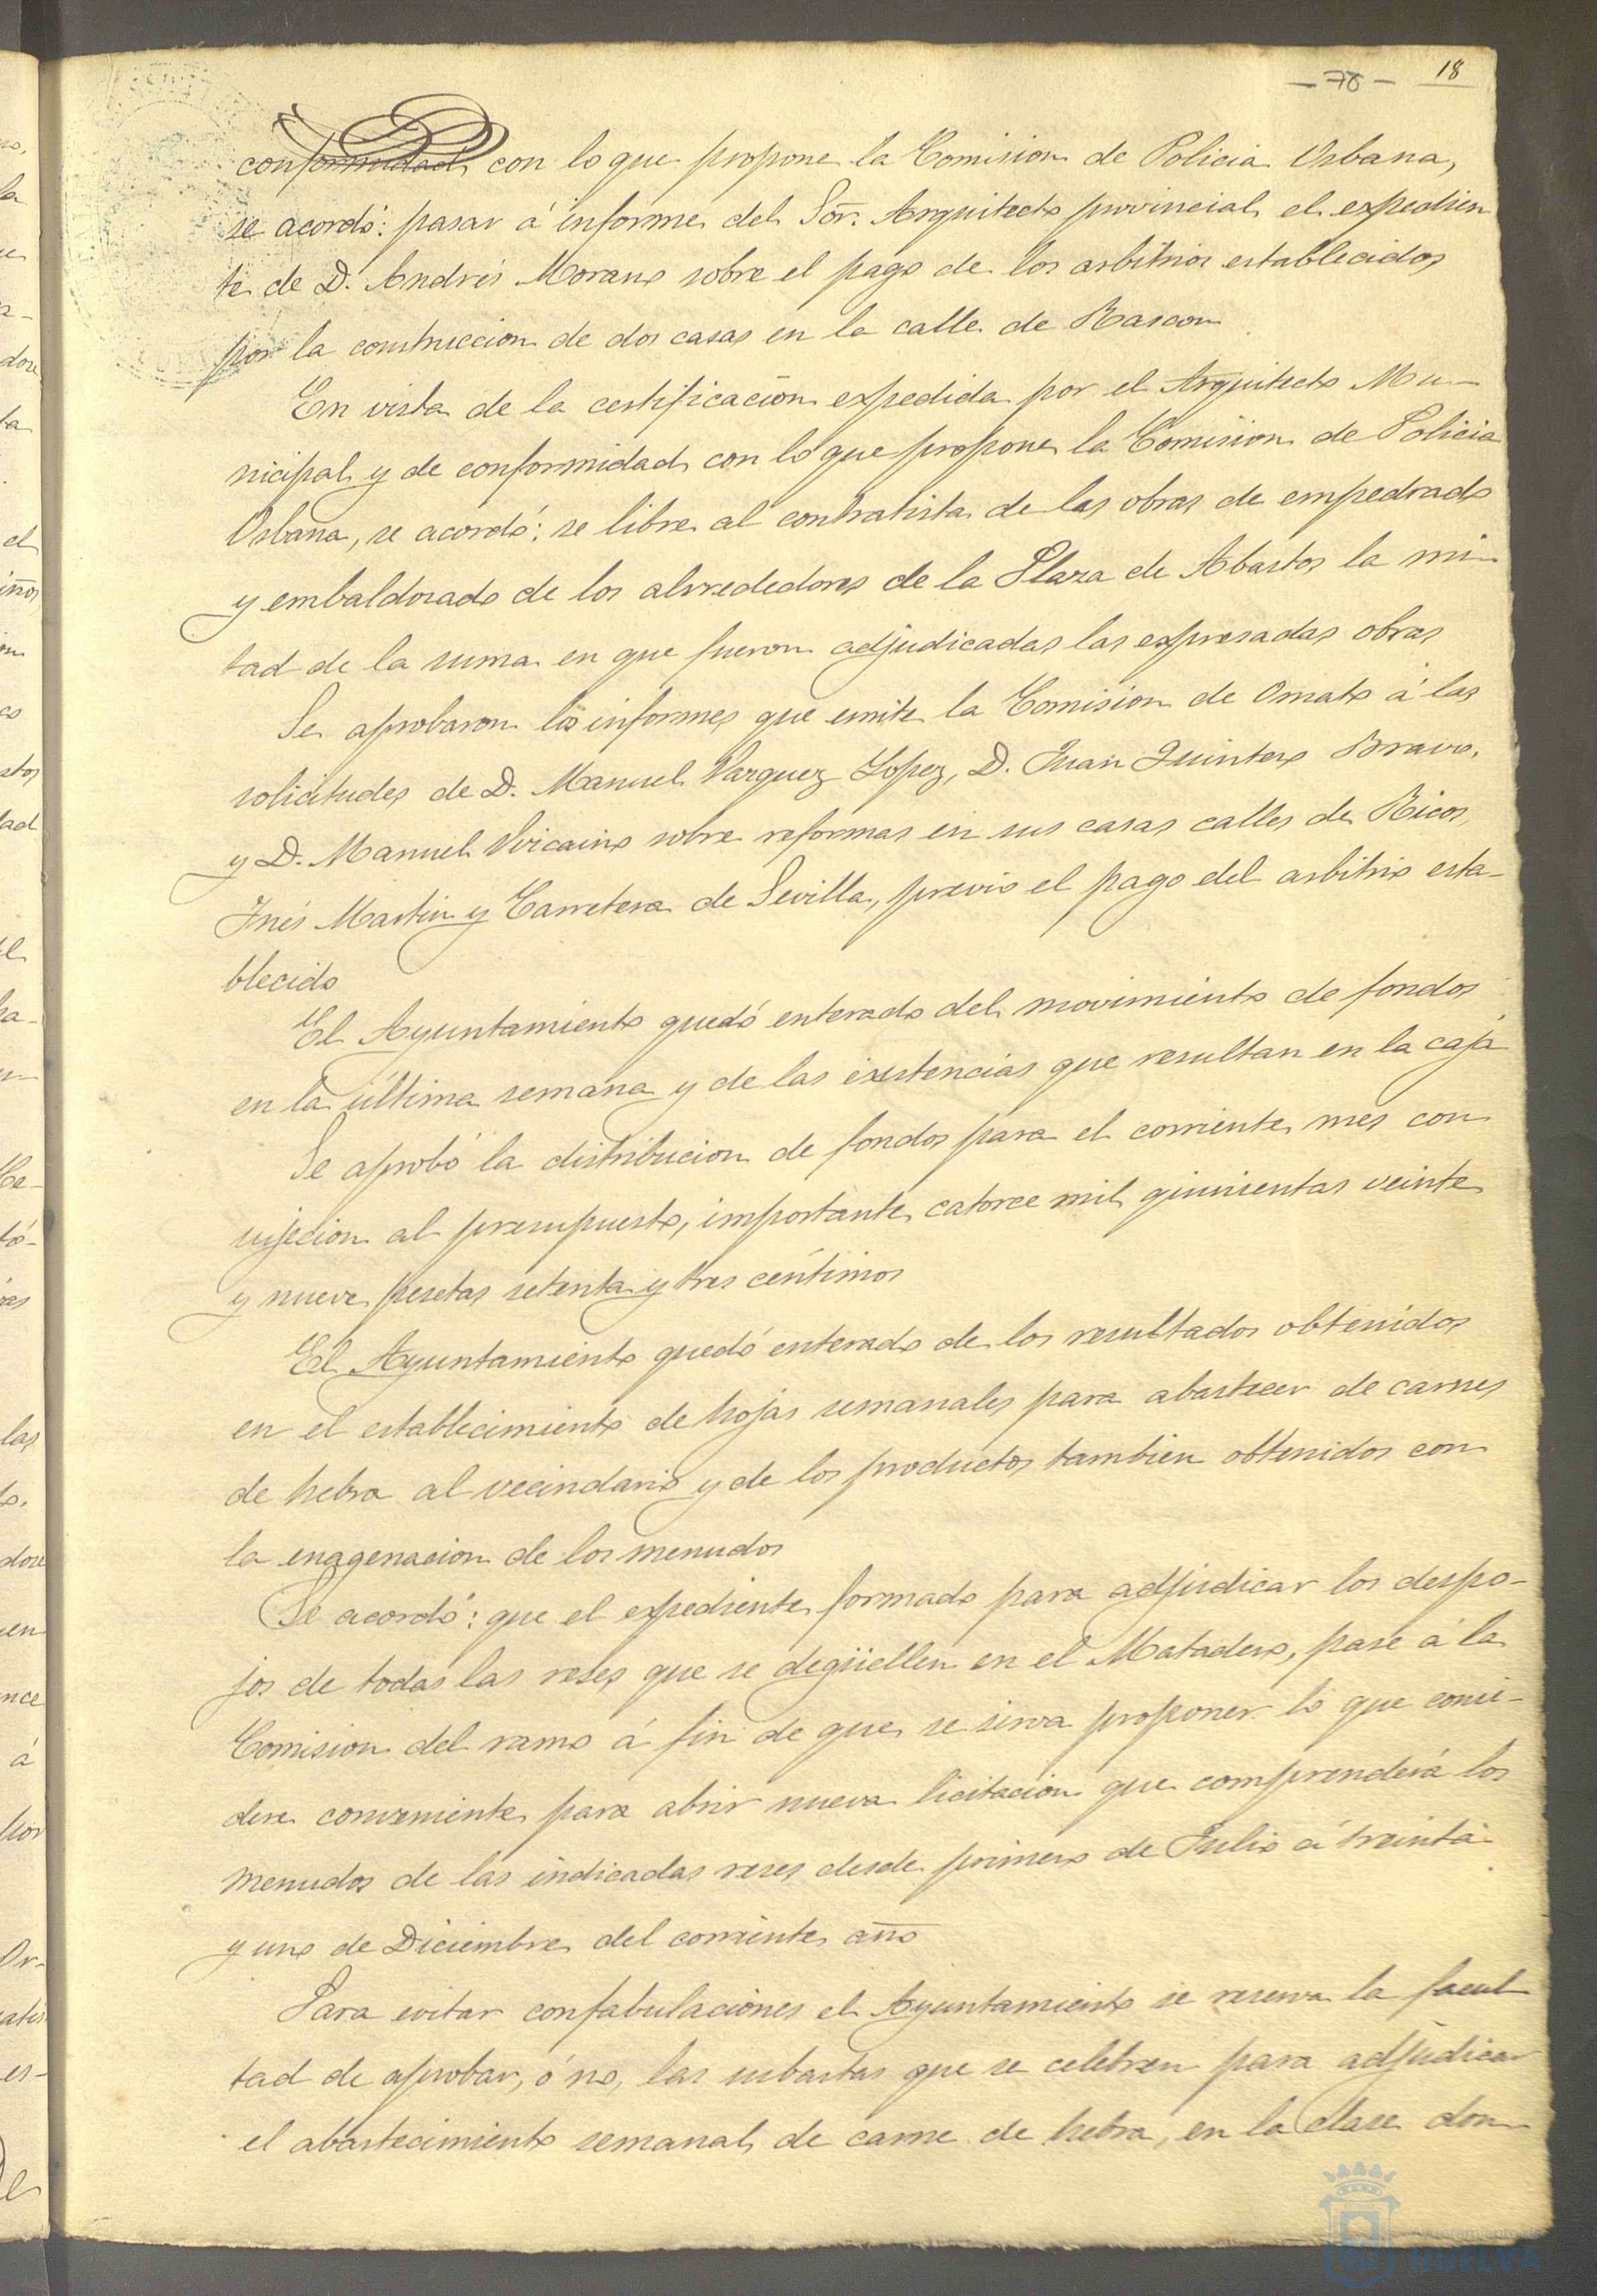 - 78 - 18
conformidad con lo que propone la Comision de Policia Urbana,
se acordó: pasar á informe del Sör. Arquitecto provincial el expedien
te de D. Andrés Morano sobre el pago de los arbitrios establecidos
por la construccion de dos casas en la calle de Rascon
En vista de la certificación expedida por el Arquitecto Mu-
nicipal y de conformidad con lo que propone la Comision de Policia
Urbana, se acordó: se libre al contratista de las obras de empedrado
y embaldosado de los alrrededores de la Plaza de Abastos la mi-
tad de la suma en que fueron adjudicadas las expresadas obras
Se aprobaron los informes que emite la Comision de Ornato á las
solicitudes de D. Manuel Vazquez Lopez, D. Juan Quintero Bravo,
y D. Manuel Vizcaino sobre reformas en sus casas calles de Ricos,
Inés Martin y Carretera de Sevilla, previo el pago del arbitrio esta-
blecido
El Ayuntamiento quedó enterado del movimiento de fondos
en la última semana y de las existencias que resultan en la caja
Se aprobó la distribucion de fondos para el corriente mes con
sujecion al presupuesto, importante catorce mil quinientas veinte
y nueve pesetas setenta y tres céntimos
El Ayuntamiento quedó enterado de los resultados obtenidos
en el establecimiento de hojas semanales para abastecer de carnes
de hebra al vecindario y de los productos tambien obtenidos con
la enagenacion de los menudos
Se acordó: que el expediente formado para adjudicar los despo-
jos de todas las reses que se degüellen en el Matadero, pase á la
Comision del ramo á fin de que se sirva proponer lo que consi-
dere conveniente para abrir nueva licitacion que comprenderá los
menudos de las indicadas reses desde primero de Julio á treinta
y uno de Diciembre del corriente año
Para evitar confabulaciones el Ayuntamiento se reserva la facul
tad de aprobar, ó no, las subastas que se celebren para adjudicar
el abastecimiento semanal de carne de hebra, en la clase don
Ayuntamiento de
HUELVA